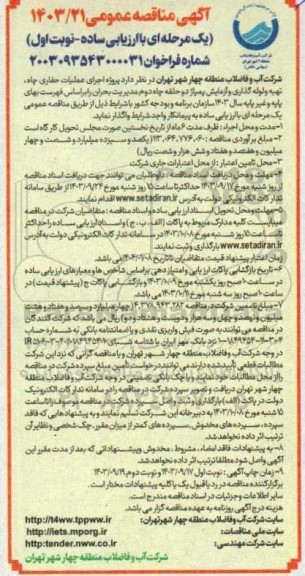 آگهی مناقصه عمومی ۱۴۰۳/۲۱
(یک مرحله ای با ارزیابی ساده - نوبت اول)
شماره فراخوان ۲۰۰۳۰۹۳۵۴۳۰۰۰۰۳۱
شرکت آب و فاضلاب منطقه چهار شهر تهران در نظر دارد پروژه اجرای عملیات حفاری چاه،
تهیه و لوله گذاری و آزمایش پمپاژ دو حلقه چاه دوم مدیریت بحران براساس فهرست بهای
پایه و غیر پایه سال ۱۴۰۳ سازمان برنامه و بودجه کشور با شرایط ذیل از طریق مناقصه عمومی
یک مرحله ای با ارزیابی ساده به پیمانکار واجد شرایط واگذار نماید.
۱- مدت و محل اجراء: ظرف مدت ۶ ماه از تاریخ نخستین صورت مجلس تحویل کار گاه است
۲- مبلغ برآوردی مناقصه:
میلیون و هفتصد و هفتاد و شش هزار و شصت ریال)
۳- محل تامین اعتبار: از محل اعتبارات جاری شرکت
۴- مهلت و محل دریافت اسناد مناقصه: داوطلبان می توانند جهت دریافت اسناد مناقصه
از روز شنبه مورخ ۱۴۰۳/۰۹/۱۷ حداکثر تا ساعت ۱۵ روز شنبه مورخ ۱۴۰۳/۰۹/۲۴ از طریق سامانه
تدارکات الکترونیکی دولت به آدرس www.setadiran.ir اقدام نمایند.
۵- مهلت و محل تحویل اسناد ارزیابی ساده و اسناد مناقصه: متقاضیان شرکت در مناقصه
میبایست کلیه مدارک مربوط به پاکات (الف، ب، ج) و اسناد ارزیابی ساده را حداکثر
تا ساعت ۱۵ روز شنبه مورخ ۱۴۰۳/۱۰/۰۸ در سامانه تدارکات الکترونیکی دولت به آدرس
www.setadiran.ir بارگذاری و ثبت نمایند.
زمان اعتبار پیشنهاد قیمت متقاضیان تا تاریخ می باشد.
۶- تاریخ بازگشایی پاکات ارزیابی و امتیازدهی براساس شاخص ها و معیارهای ارزیابی ساده
در ساعت ۱۰ صبح روز یکشنبه مورخ ۱۴۰۳/۱۰/۰۹ و بازگشایی پاکات ج (پیشنهاد قیمت) در
ساعت ۱۰ صبح روز سه شنبه مورخ می باشد.
۷- مبلغ تضمین شرکت در مناقصه
در مناقصه می توانند به صورت فیش واریزی نقدی و یا ضمانتنامه بانکی به شماره حساب
نزد بانک مهر ایران با شناسه شبای
در وجه شرکت آب و فاضلاب منطقه چهار شهر تهران و یا مناقصه گرانی که نزد این شرکت
مطالبات قطعی تأیید شده دارند می توانند درخواست تأمین مبلغ سپرده شرکت در مناقصه
را از محل مطالبات خود نمایند و یا چک بانکی تضمینی در وجه شرکت آب و فاضلاب منطقه
چهار شهر تهران دریافت و تصویر سپرده شرکت در مناقصه را در سامانه تدارکات الکترونیک
دولت در پاکت (الف) بارگذاری و ثبت و اصل سپرده شرکت در مناقصه موصوف را تا ساعت
۱۵ شنبه مورخ ۱۴۰۳/۱۰/۰۸ به دبیرخانه این شرکت تسلیم نمایند و به پیشنهادهایی که فاقد
سپرده، سپرده های مخدوش، سپرده های کمتر از میزان مقرر، چک شخصی و نظایر آن
ترتیب اثر داده نخواهد شد.
۸- به پیشنهادات فاقد امضاء، مشروط، مخدوش و پیشنهاداتی که بعد از مدت مقرر این
آگهی واصل شود مطلقا ترتیب اثر داده نخواهد شد.
۹- زمان چاپ آگهی: نوبت اول ۱۴۰۳/۰۹/۱۷ و نوبت دوم ۱۴۰۳/۰۹/۱۹
برگزارکننده مناقصه در رد یا قبول یک یا کلیه پیشنهادات مختار است.
سایر اطلاعات و جزئیات در اسناد مناقصه مندرج است.
هزینه درج آگهی روزنامه به عهده مناقصه گزار می باشد.
سایت شرکت آب و فاضلاب منطقه چهار شهر تهران: http://t4ww.tppww.ir
سایت ملی مناقصات: http://iets.mporg.ir
سایت شرکت مهندسی: http://tender.nww.co.ir
شرکت آب و فاضلاب منطقه چهار شهر تهران